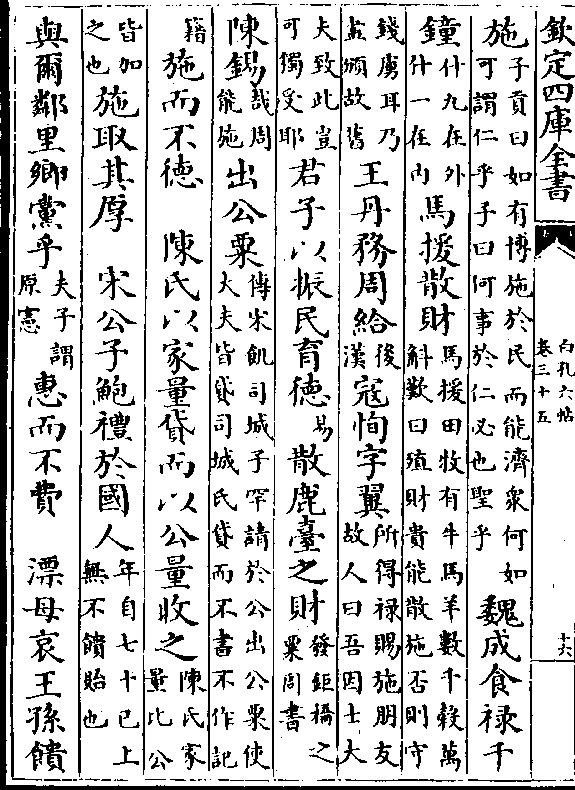 欽定四庫全書
白孔六帖
卷三十五
十六
施子貢曰如有博施於民而能濟衆何如可謂仁乎子曰何事於仁必也聖乎魏成食禄千
鐘什九在外什一在内馬援散財馬援田牧有牛馬羊數千榖萬斛歎曰殖財貴能散施否則守
錢虜耳乃盡頒故舊王丹務周給後漢寇恂字翼所得禄賜施朋友故人曰吾因士大
夫致此豈可獨受耶君子以振民育德易散鹿臺之財發鉅橋之粟周書
陳錫哉周能施出公粟傳宋飢司城子罕請於公出公粟使大夫皆貸司城氏貸而不書不作記
籍施而不德 陳氏以家量貸而以公量收之陳氏家量比公
皆加之也施取其厚 宋公子鮑禮於國人年自七十已上無不饋貽也
與爾鄰里鄉黨乎夫子謂原憲惠而不費 漂母哀王孫饋